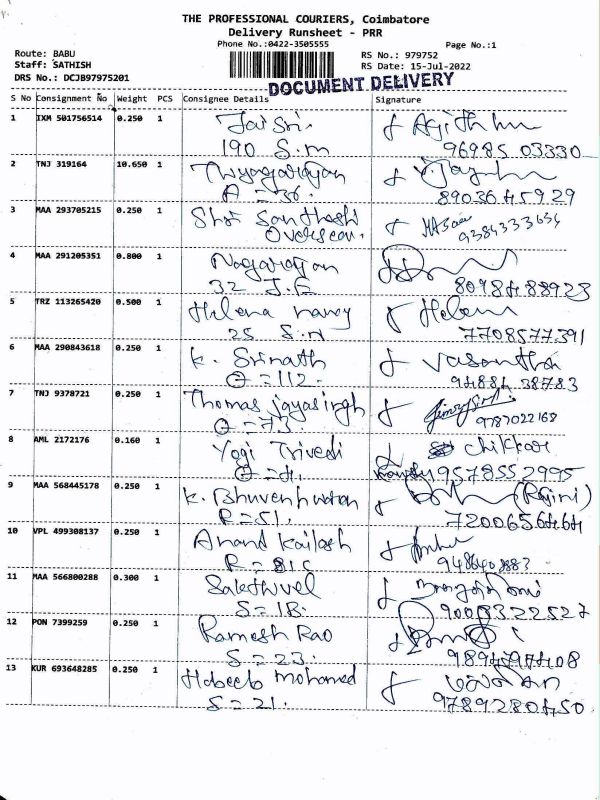 THE PROFESSIONAL COURIERS, Coimbatore
Delivery Runsheet - PRR
Phone No.:0422-3505555
Page No.:1
Route: BABU
RS No.: 979752
Staff: SATHISH
RS Date: 15-Jul-2022
DRS No.: DCJB97975201
DOCUMENT DELIVERY
S No Consignment No Weight PCS Consignee Details Signature
1 IXM 501756514 0.250 1 Jai Sri.
190 S.M 96985 03330
2 TNJ 319164 10.650 1 Thyagarajan
A = 36. 8903645929
3 MAA 293705215 0.250 1 Shri Santhoshi
9384333634
4 MAA 291205351 0.800 1 Nagarajan
32 J.E 8098488923
5 TRZ 113265420 0.500 1 Helena nancy Helen
25 S.N 7708577391
6 MAA 290843618 0.250 1 K. Srinath Vasantha
O = 112. 94884 38783
7 TNJ 9378721 0.250 1 Thomas jayasingh
O = 73 9787022168
8 AML 2172176 0.160 1 Yogi Trivedi
9578552995
9 MAA 568445178 0.250 1 (Rajini)
R = 51. 7200656464
10 VPL 499308137 0.250 1 Anand Kailash
R = 81C
11 MAA 566800288 0.300 1 Sakthivel
S = 1B. 9003322527
12 PON 7399259 0.250 1 Ramesh Rao
S = 23.
13 KUR 693648285 0.250 1 Habeeb mohamed
S = 21. 9789280450